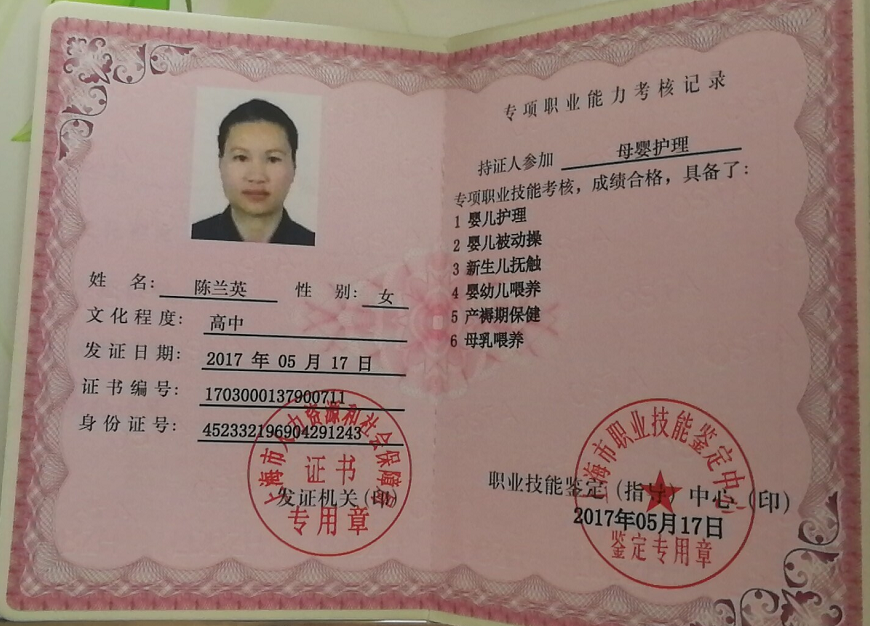 姓 名： 陈兰英 性 别： 女
文化程度： 高中
发证日期： 2017 年 05 月 17 日
证书编号： 1703000137900711
身份证号： 452332196904291243
上海市人力资源和社会保障局
证书
专用章
发证机关(印)
专项职业能力考核记录
持证人参加 母婴护理
专项职业技能考核，成绩合格，具备了：
1 婴儿护理
2 婴儿被动操
3 新生儿抚触
4 婴幼儿喂养
5 产褥期保健
6 母乳喂养
上海市职业技能鉴定中心
职业技能鉴定（指导）中心（印）
2017年05月17日
鉴定专用章